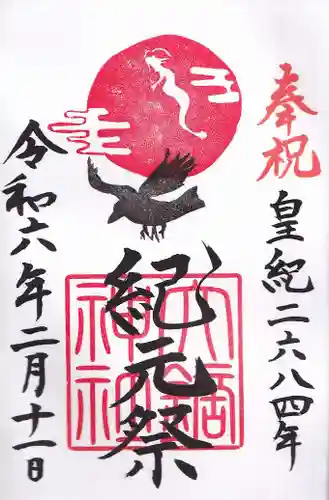 奉祝
皇紀二六八四年
紀元祭
令和六年二月十一日